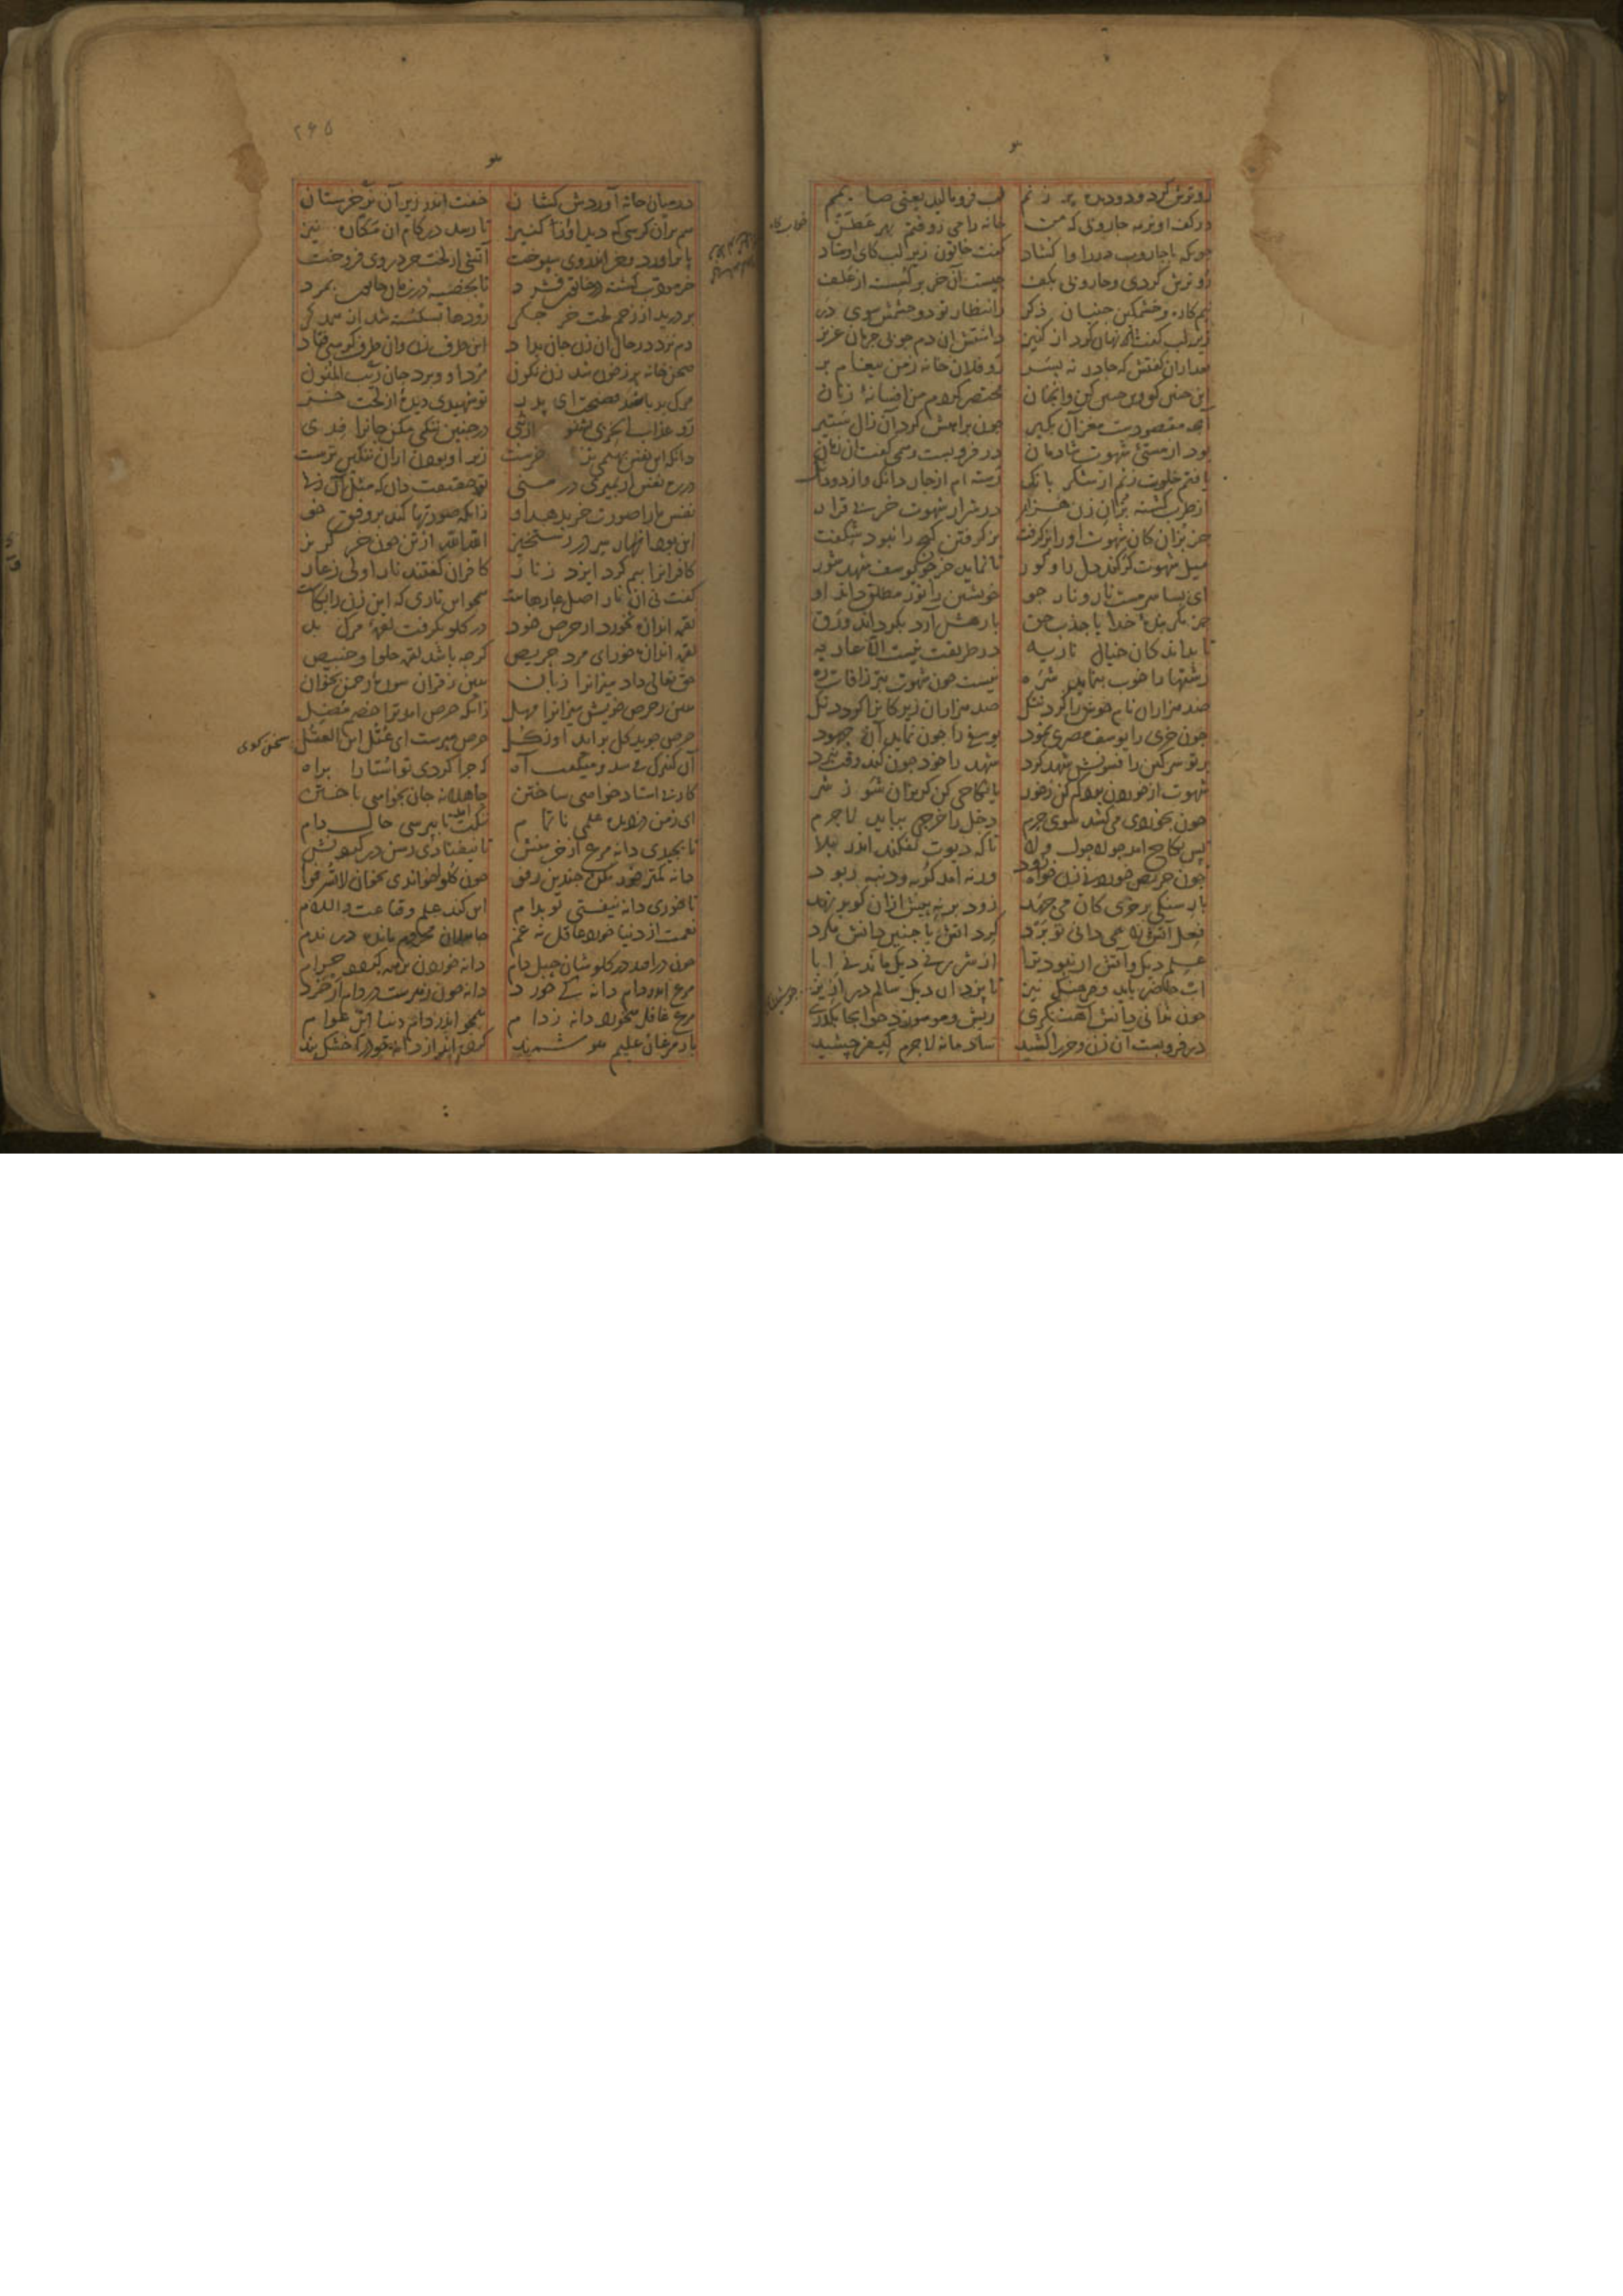 رو ترش کرد و دو دیده پر ز نم لب فرو مالید یعنی صایمم
در کف او نرمه جاروبی که من خانه را می روفتم بهر عطن
چونکه با جاروب در را وا کشاد گفت خاتون زیر لب کای اوستاد
رو ترش کردی و جاروبی بکف چیست آن خر برکسسته از علف
نیم کاره و خشمکین جنبان ذکر ز انتظار تو دو چشمش سوی در
زیر لب گفت نهان کرد از کنیز داشتش آن دم چو بی جرمان عزیز
بعد ازان گفتش که چادر نه بسر رو فلان خانه ز من پیغام بر
این چنین کو وین چنین کن وانچنان مختصر کردم من افسانه زنان
آنچه مقصودست مغز آن بکیر چون براهش کرد آن زال ستیر
بود از مستی شهوت شادمان در فرو بست و همی گفت آن زمان
یافتم خلوت زنم از شکر بانک رسته ام از چار دانک و از دو دانک
از طرب کشته بزان زن هزار در شرار شهوت خر بی قرار
چه بزان کان شهوت او را بز کرفت بز کرفتن کیج را نبود شکفت
میل شهوت کر کند دل را و کور تا نماید خر چو یوسف شهد شور
ای بسا سرمست نار و نار جو خویشتن را نور مطلق داند او
جز مکر بنده خدا یا جذب حق با رهش آرد بکرداند ورق
تا بداند کان خیال ناریه در طریقت نیست الا عاریه
زشتها را خوب بنماید شره نیست چون شهوت بتر ز آفات ره
صد هزاران نام خوش را کرد ننک صد هزاران زیرکان را کرد دنک
چون خری را یوسف مصری نمود یوسفی را چون نماید آن جهود
بر تو سرکین را فسونش شهد کرد شهد را خود چون کند وقت نبرد
شهوت از خوردن بود کم کن ز خور یا نکاحی کن کریزان شو ز شر
چون بخوردی می کشد سوی حرم دخل را خرجی بباید لاجرم
پس نکاح آمد چو لاحول و لا تا که دیوت نفکند اندر بلا
چون حریص خوردنی زن خواه زود ورنه آمد کربه و دنبه ربود
بار سنکی بر خری کان می جهد زود بر نه پیش ازان کو بر نهد
فعل آتش را نمی دانی تو برد کرد آتش با چنین دانش مکرد
علم دیک و آتش ار نبود ترا از شرر نی دیک ماند نی ابا
آب حاضر باید و فرهنک نیز تا پزد آن دیک سالم در ازیز
چون ندانی دانش آهنکری ریش و مو سوزد چو آنجا بکذری
در فرو بست آن زن و خر را کشید شادمانه لاجرم کیفر چشید
۲۶۵
در میان خانه آوردش کشان خفت اندر زیر آن نر خر ستان
هم بران کرسی که دید او از کنیز تا رسد در کام آن مکاره نیز
پا بر آورد و خر اندر وی سپوخت آتشی از لخت خر در وی فروخت
خر مؤدب کشته در خاتون فشرد تا بخصیه در زمان خاتون بمرد
بر درید از زخم لخت خر جکر روده‌ها بسکسته شد از همدکر
دم نزد در حال آن زن جان بداد این طرف زن وان طرف کرسی فتاد
صحن خانه پر ز خون شد زن نکون مرد او و برد جان ریب المنون
مرک بد با صد فضیحت ای پدر تو شهیدی دیده از لخت خر
تو عذاب الخزی بشنو از نبی در چنین ننکی مکن جانرا فدی
دانکه این نفس بهیمی خرست زیر او بودن ازان ننکین ترست
در ره نفس ار بمیری در منی تو حقیقت دان که مثل آن زنی
نفس ما را صورت خر بدهد او زانکه صورتها کند بر وفق خو
این بود اظهار سر در رستخیز الله الله از تن چون خر کریز
کافرانرا بیم کرد ایزد ز نار کافران گفتند نار اولی ز عار
گفت نی آن نار اصل عارهاست همچو این ناری که این زن را بکاست
لقمه اندازه نخورد از حرص خود در کلو بکرفت لقمه مرک بد
لقمه اندازه خور ای مرد حریص کرچه باشد لقمه حلوا و خبیص
حق تعالی داد میزانرا زبان هین ز قرآن سوره رحمن بخوان
هین ز حرص خویش میزانرا مهل زانکه حرص آمد ترا خصم مضل
حرص جوید کل بر آید او ز کل حرص مپرست ای عتل ابن العتل
آن کنیزک می شد و میگفت آه که چرا کردی تو استا را براه
کار بی استاد خواهی ساختن جاهلانه جان بخواهی باختن
ای ز من دزدیده علمی ناتمام ننکت آمد تا بپرسی حال دام
تا بچیدی دانه مرغ از خرمنش تا نیفتادی رسن در کردنش
دانه کمتر خور مکن چندین رفو چون کلوا خواندی بخوان لا تسرفوا
تا خوری دانه نیفتی تو بدام این کند علم و قناعت والسلام
نعمت از دنیا خورد عاقل نه غم جاهلان محروم مانده در ندم
چون در آمد در کلوشان حبل دام دانه خوردن بر همه کردد حرام
مرغ اندر دام دانه کی خورد دانه چون زهرست در دام ار خرد
مرغ غافل میخورد دانه ز دام همچو اندر دام دنیا این عوام
باز مرغان علیم هوشمند کرده اند از دانه خود را خشک بند